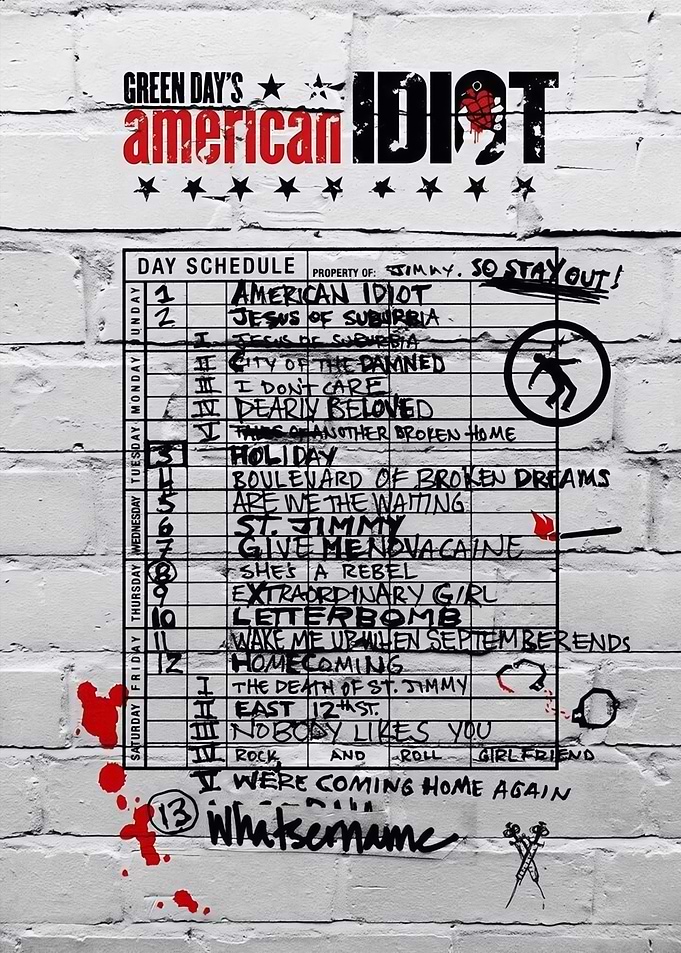 GREEN DAY'S
american IDIOT
DAY SCHEDULE PROPERTY OF: JIMMY. SO STAY OUT!
SUNDAY
MONDAY
TUESDAY
WEDNESDAY
THURSDAY
FRIDAY
SATURDAY
1 AMERICAN IDIOT
2 JESUS OF SUBURBIA
I JESUS OF SUBURBIA
II CITY OF THE DAMNED
III I DON'T CARE
IV DEARLY BELOVED
V TALES OF ANOTHER BROKEN HOME
3 HOLIDAY
4 BOULEVARD OF BROKEN DREAMS
5 ARE WE THE WAITING
6 ST. JIMMY
7 GIVE ME NOVACAINE
8 SHE'S A REBEL
9 EXTRAORDINARY GIRL
10 LETTERBOMB
11 WAKE ME UP WHEN SEPTEMBER ENDS
12 HOMECOMING
I THE DEATH OF ST. JIMMY
II EAST 12TH ST.
III NOBODY LIKES YOU
IV ROCK AND ROLL GIRLFRIEND
V WERE COMING HOME AGAIN
13 Whatsername